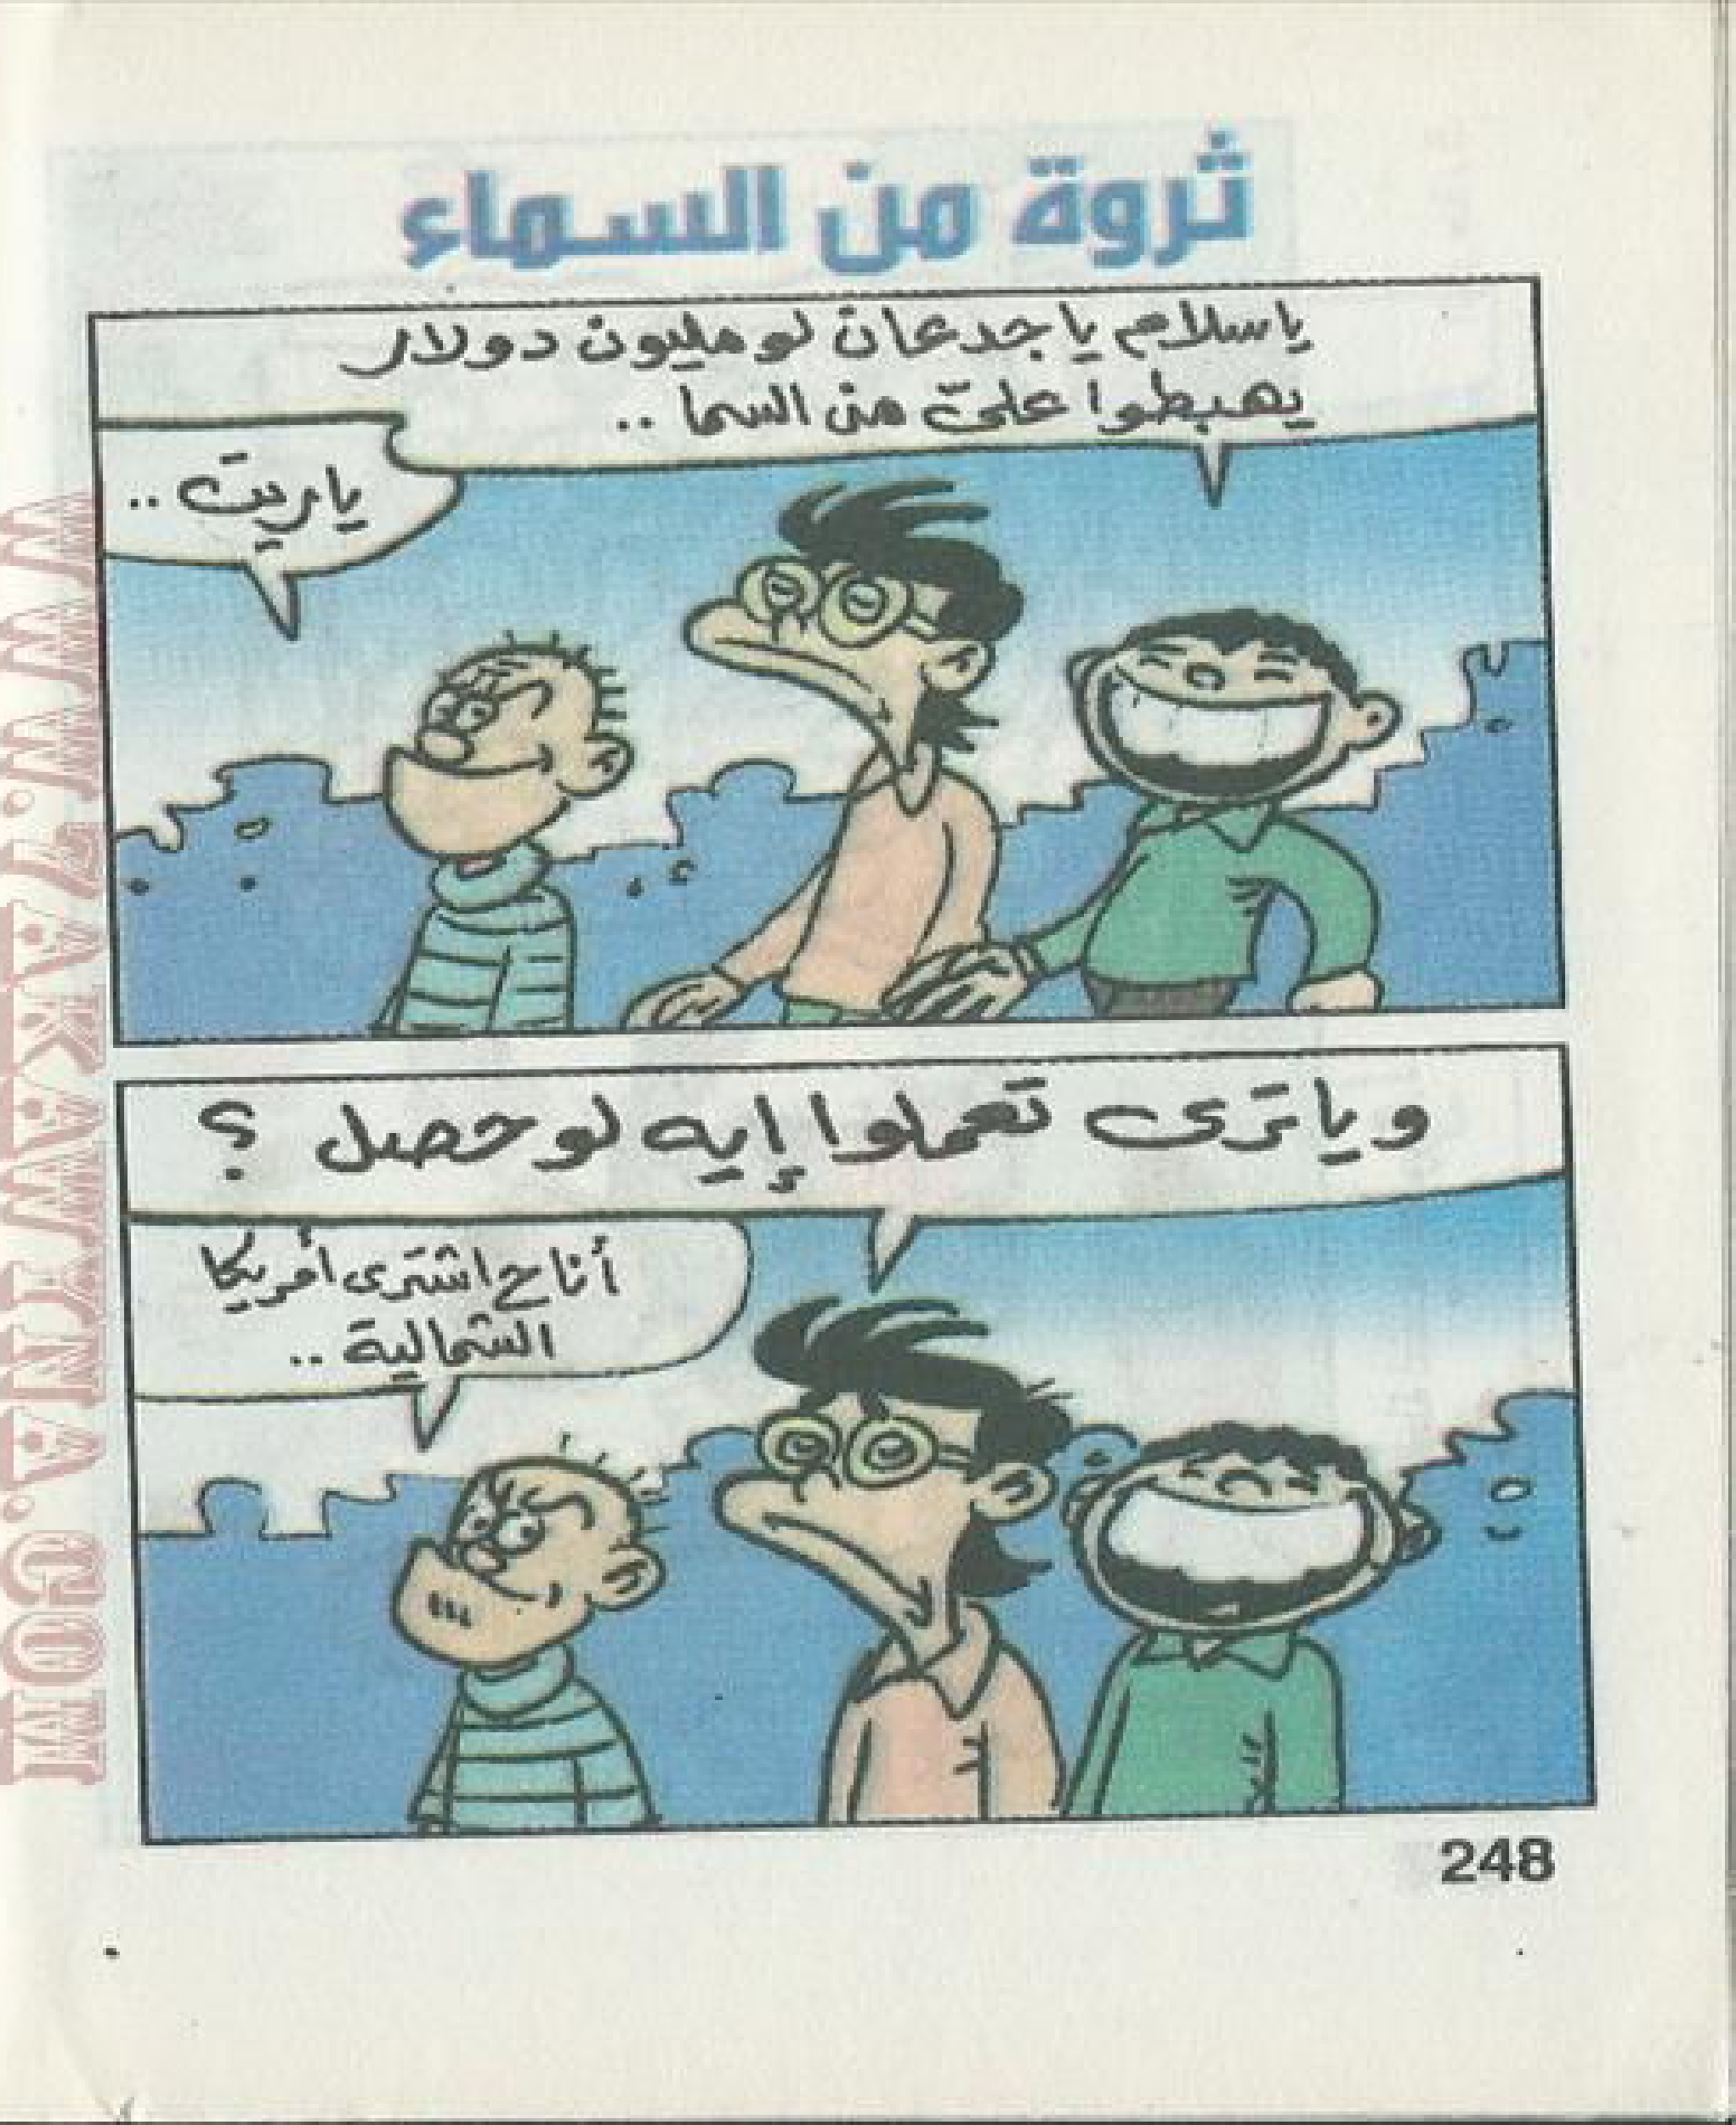 ثروة من السماء
ياسلام ياجدعان لو مليون دولار
يهبطوا علىّ من السما ..
ياريت ..
وياترى تعملوا إيه لو حصل ؟
أنا ح اشترى أمريكا
الشمالية ..
248
WWW.ZAKAWTNA.COM